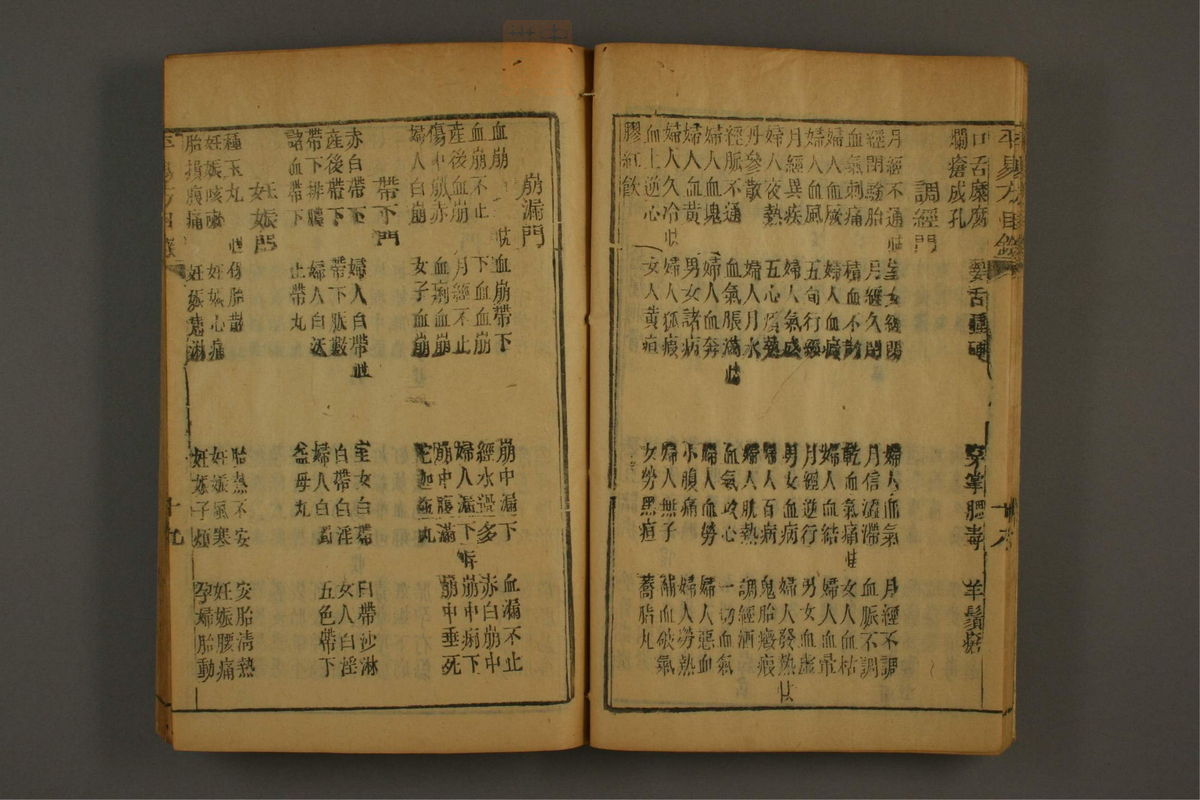 平易方目錄 十八
口舌糜腐 舌重硬 穿掌腮毒 羊鬚瘡
爛瘡成孔
調經門
月經不通 室女經閉 婦人血氣 月經不調
經閉諗胎 月經久閉 月信澀滯 血脈不調
血氣刺痛 積血不散 乾血氣痛 女人血枯
婦人血 婦人血瘕 婦人血結 婦人血暈
婦人血風 五旬行經 月經逆行 男女血虛
月經異疾 婦人氣盛 男女血病 婦人發熱
婦人夜熱 五心煩熱 婦人百病 鬼胎癥痕
丹參散 婦人月水 婦人肌熱 調經酒
經脈不通 血氣脹滿 血氣攻心 一切血氣
婦人血塊 婦人血奔 婦人血勞 婦人惡血
婦人血黃 男女諸病 小腹痛 婦人勞熱
婦人久冷 婦人狐瘕 婦人無子 補血破氣
血上逆心 女人黃疸 女勞黑疸 蕎脂丸
膠紅飲
崩漏門
血崩 血崩帶下 崩中漏下 血漏不止
血崩不止 下血血崩 經水過多 赤白崩中
產後血崩 月經不止 婦人漏下 崩中痢下
傷中崩赤 血痢血崩 崩中腹滿 崩中垂死
婦人白崩 女子血崩 丸
帶下門
赤白帶下 婦人白帶 室女白帶 白帶沙淋
產後帶下 帶下脈數 白帶白淫 女人白淫
帶下排膿 婦人白沃 婦人白濁 五色帶下
諸血帶下 止帶丸 益母丸
妊娠門
種玉丸 傷胎散 胎熱不安 安胎清熱
妊娠咳嗽 妊娠心痛 妊娠氣寒 妊娠腰痛
胎損腹痛 妊娠患淋 妊娠子煩 孕婦胎動
平易方目錄 十九